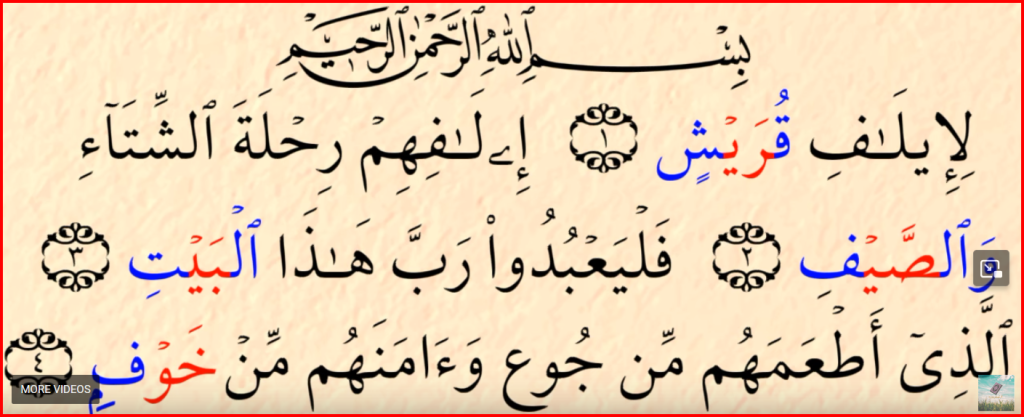 بِسْمِ ٱللَّهِ ٱلرَّحْمَٰنِ ٱلرَّحِيمِ
لِإِيلَـٰفِ قُرَيْشٍ ١ إِۦلَـٰفِهِمْ رِحْلَةَ ٱلشِّتَآءِ
وَٱلصَّيْفِ ٢ فَلْيَعْبُدُوا۟ رَبَّ هَـٰذَا ٱلْبَيْتِ ٣
ٱلَّذِىٓ أَطْعَمَهُم مِّن جُوعٍ وَءَامَنَهُم مِّنْ خَوْفٍ ٤
MORE VIDEOS